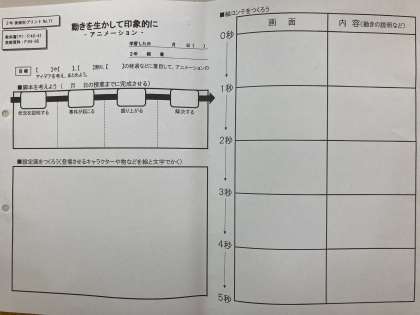 2年 美術科プリント No.11
動きを生かして印象的に
- アニメーション -
学習した日　　月　　日（　）
2年　　組　　番
目標 [　　]や[　　]、[　　]間の[　　]の経過などに着目して、アニメーションの
アイデアを考え、まとめよう。
■脚本を考えよう（　月　日の授業までに完成させる）
状況を説明する
事件が起こる
盛り上がる
解決する
■設定画をつくろう(登場させるキャラクターや物などを絵と文字でかく)
■絵コンテをつくろう
画　面
内　容(動きの説明など)
0秒
1秒
2秒
3秒
4秒
5秒